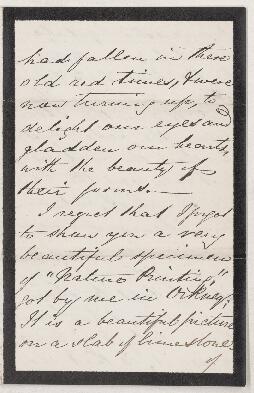 had fallen in there
old red times, & were
now turning up, to
delight our eyes and
gladden our hearts,
with the beauty of
their forms. —
I regret that I forgot
to shew you a very
beautiful specimen
of " Printing,"
got by me in Orkney;
It is a beautiful picture
on a slab of limestone
of